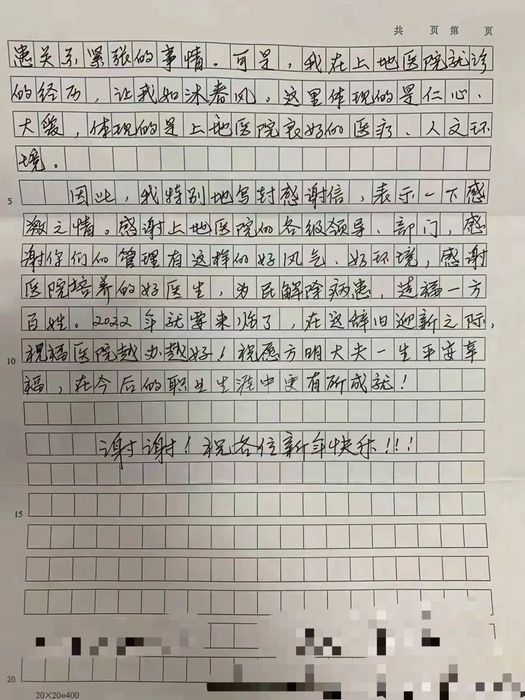 共 页 第 页
患关系紧张的事情。可是，我在上地医院就诊
的经历，让我如沐春风。这里体现的是仁心、
大爱，体现的是上地医院良好的医疗、人文环
境。
5 因此，我特别地写封感谢信，表示一下感
激之情。感谢上地医院的各级领导、部门，感
谢你们的管理有这样的好风气、好环境，感谢
医院培养的好医生，为民解除病患，造福一方
百姓。2022年就要来临了，在这辞旧迎新之际，
10 祝福医院越办越好！祝愿方明大夫一生平安幸
福，在今后的职业生涯中更有所成就！
谢谢！祝各位新年快乐！！！
15
20
20×20=400